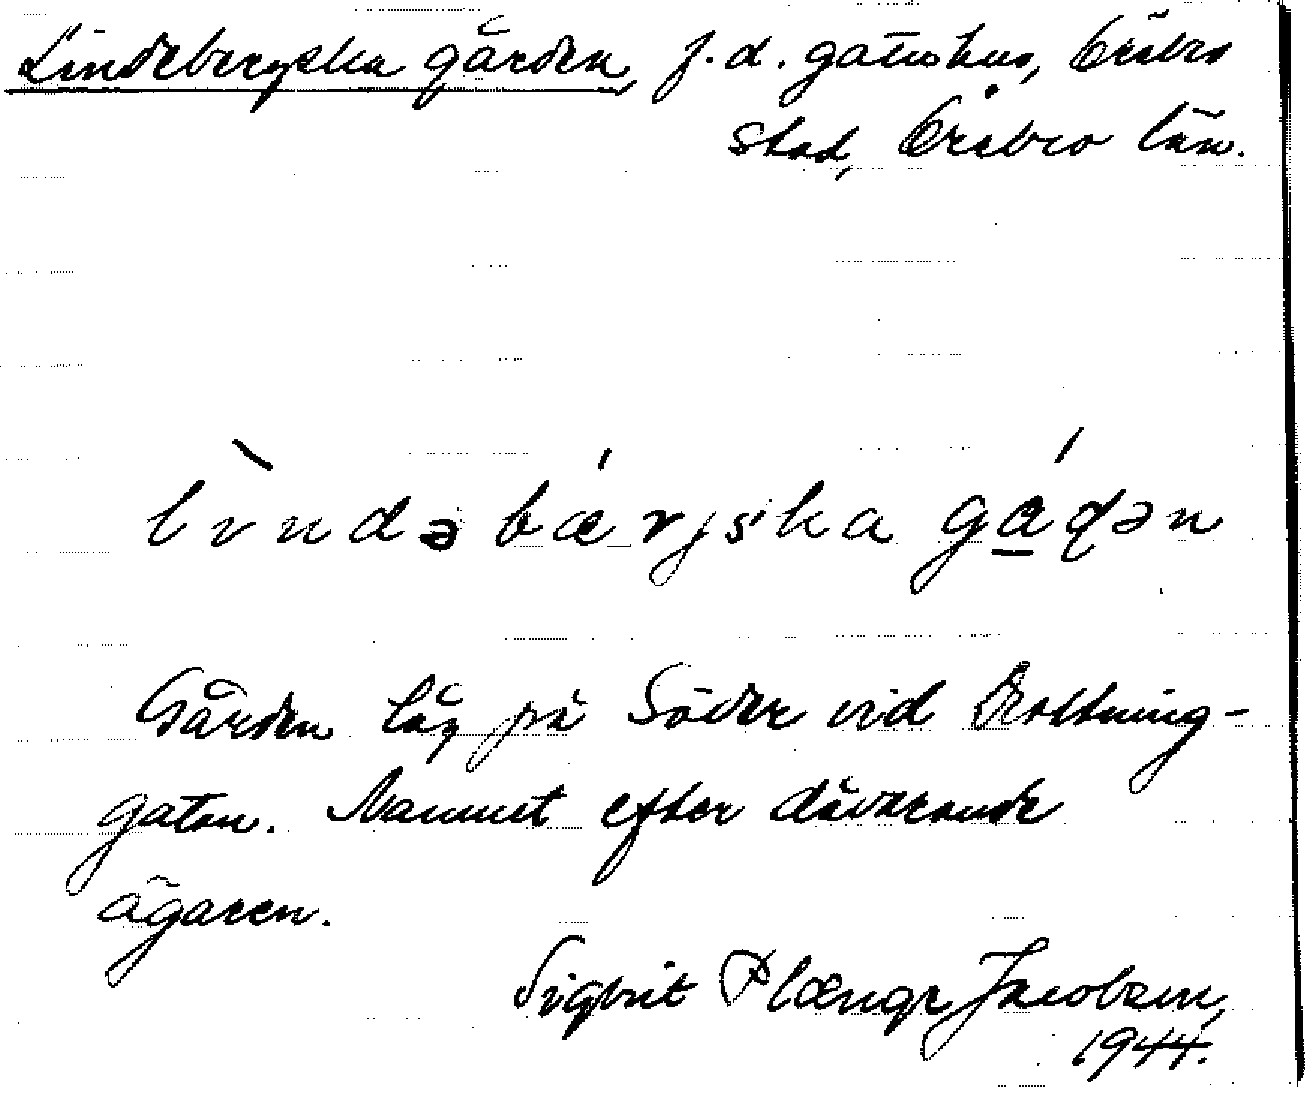 Lindebergska gården, f.d. gatuhus, Örebro
stad, Örebro län.
lìndəbǽrjska gá̱ɖən
Gården låg på Söder vid Drottning-
gatan. Namnet efter dåvarande
ägaren.
Sigbrit Plænge Jacobson,
1944.